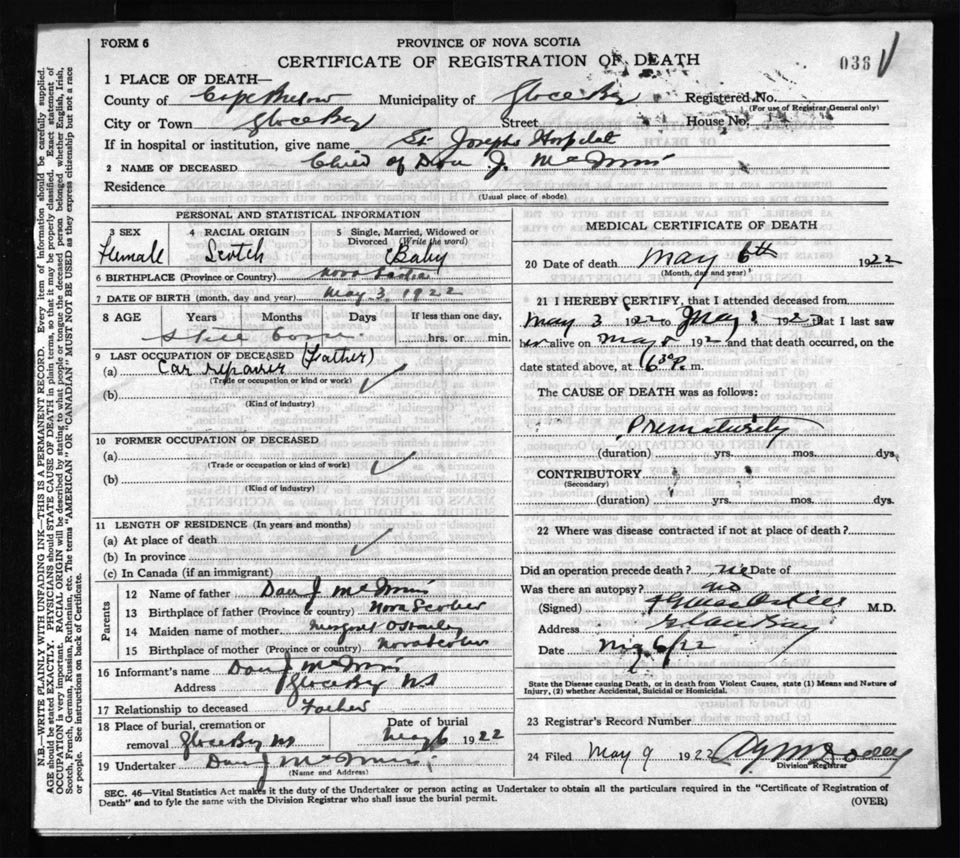 FORM 6
PROVINCE OF NOVA SCOTIA
CERTIFICATE OF REGISTRATION OF DEATH
038
N.B.—WRITE PLAINLY WITH UNFADING INK—THIS IS A PERMANENT RECORD. Every item of information should be carefully supplied.
AGE should be stated EXACTLY. PHYSICIANS should STATE CAUSE OF DEATH in plain terms, so that it may be properly classified. Exact statement of
OCCUPATION is very important. RACIAL ORIGIN will be described by stating to what people or tongue the deceased person belonged whether English, Irish,
Scotch, French, German, Russian, Ruthenian, etc. The terms "AMERICAN" OR "CANADIAN" MUST NOT BE USED as they express citizenship but not a race
or people. See instructions on back of Certificate.
1 PLACE OF DEATH—
County of Cape Breton Municipality of Glace Bay Registered No.
(For use of Registrar General only)
City or Town Glace Bay Street House No.
If in hospital or institution, give name St. Josephs Hospital
2 NAME OF DECEASED Child of Dan J. McInnis
Residence
(Usual place of abode)
PERSONAL AND STATISTICAL INFORMATION
3 SEX 4 RACIAL ORIGIN 5 Single, Married, Widowed or Divorced (Write the word)
Female Scotch (Baby
6 BIRTHPLACE (Province or Country) Nova Scotia
7 DATE OF BIRTH (month, day and year) May 3, 1922
8 AGE Years Months Days If less than one day,
Still born hrs. or min.
9 LAST OCCUPATION OF DECEASED (Father)
(a) Car repairer
(Trade or occupation or kind of work)
(b)
(Kind of industry)
10 FORMER OCCUPATION OF DECEASED
(a)
(Trade or occupation or kind of work)
(b)
(Kind of industry)
11 LENGTH OF RESIDENCE (In years and months)
(a) At place of death
(b) In province
(c) In Canada (if an immigrant)
Parents
12 Name of father Dan J McInnis
13 Birthplace of father (Province or country) Nova Scotia
14 Maiden name of mother Margaret
15 Birthplace of mother (Province or country) Nova Scotia
16 Informant's name Dan J McInnis
Address Glace Bay NS
17 Relationship to deceased Father
18 Place of burial, cremation or removal Glace Bay NS Date of burial May 6 1922
19 Undertaker Dan J McInnis
(Name and Address)
MEDICAL CERTIFICATE OF DEATH
20 Date of death May 6th 1922
(Month, day and year)
21 I HEREBY CERTIFY, that I attended deceased from
May 3 1922 to May 1922 that I last saw
her alive on May 192 and that death occurred, on the
date stated above, at 6 30 P. m.
The CAUSE OF DEATH was as follows:
Prematurity
(duration) yrs. mos. dys.
CONTRIBUTORY
(Secondary)
(duration) yrs. mos. dys.
22 Where was disease contracted if not at place of death?
Did an operation precede death? no Date of
Was there an autopsy? no
(Signed) M.D.
Address Glace Bay
Date May 6/22
State the Disease causing Death, or in death from Violent Causes, state (1) Means and Nature of
Injury, (2) whether Accidental, Suicidal or Homicidal.
23 Registrar's Record Number
24 Filed May 9 1922
Division Registrar
SEC. 46—Vital Statistics Act makes it the duty of the Undertaker or person acting as Undertaker to obtain all the particulars required in the "Certificate of Registration of
Death" and to fyle the same with the Division Registrar who shall issue the burial permit.
(OVER)